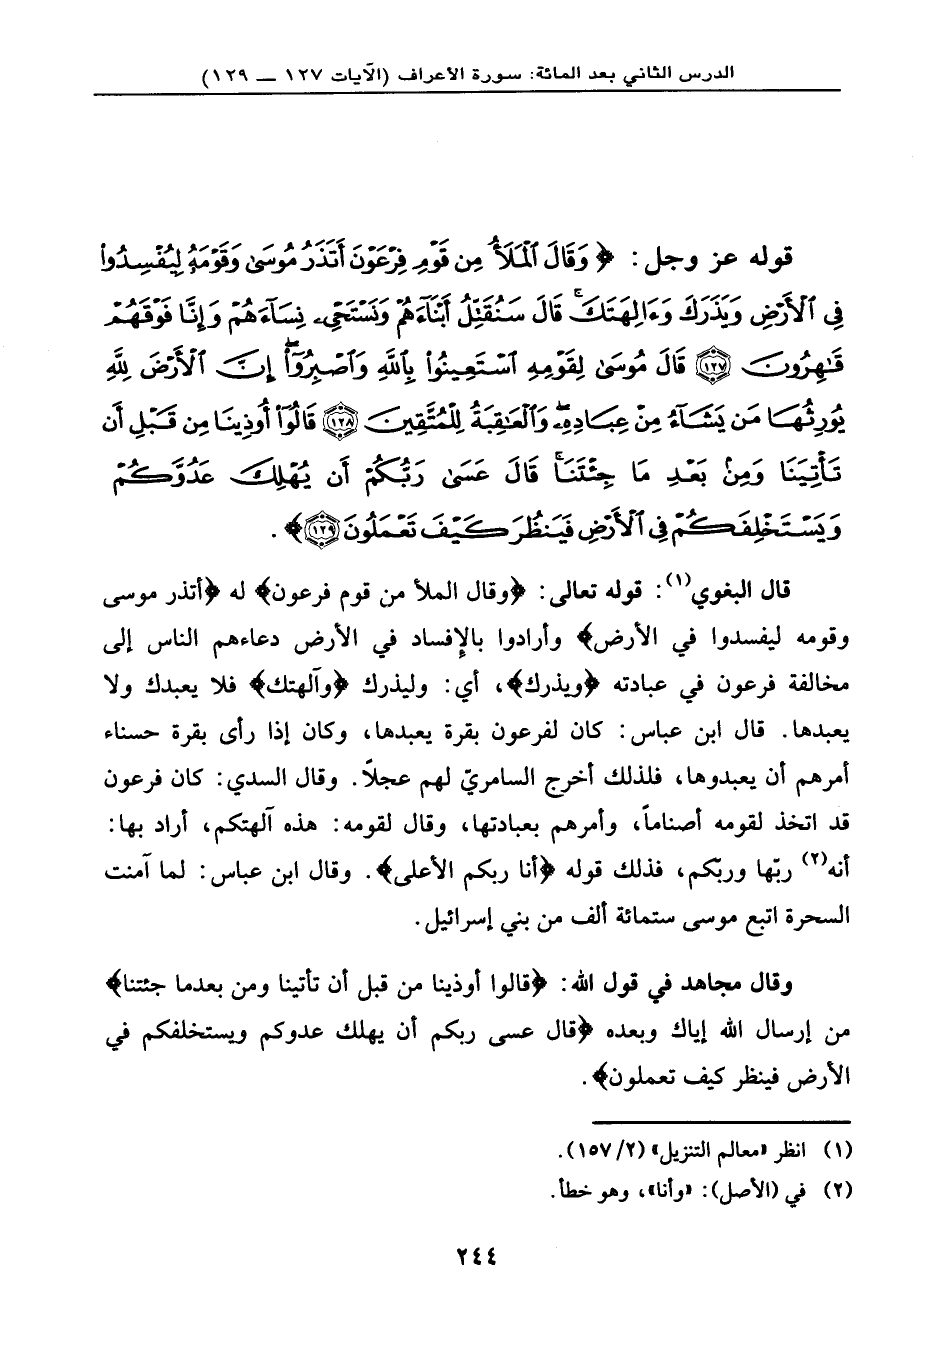 الدرس الثاني بعد المائة: سورة الأعراف (الآيات ١٢٧ — ١٢٩)
قوله عز وجل: ﴿ وَقَالَ ٱلْمَلَأُ مِن قَوْمِ فِرْعَوْنَ أَتَذَرُ مُوسَىٰ وَقَوْمَهُۥ لِيُفْسِدُوا۟
فِى ٱلْأَرْضِ وَيَذَرَكَ وَءَالِهَتَكَ ۚ قَالَ سَنُقَتِّلُ أَبْنَآءَهُمْ وَنَسْتَحْىِۦ نِسَآءَهُمْ وَإِنَّا فَوْقَهُمْ
قَـٰهِرُونَ ١٢٧ قَالَ مُوسَىٰ لِقَوْمِهِ ٱسْتَعِينُوا۟ بِٱللَّهِ وَٱصْبِرُوٓا۟ ۖ إِنَّ ٱلْأَرْضَ لِلَّهِ
يُورِثُهَا مَن يَشَآءُ مِنْ عِبَادِهِۦ ۖ وَٱلْعَـٰقِبَةُ لِلْمُتَّقِينَ ١٢٨ قَالُوٓا۟ أُوذِينَا مِن قَبْلِ أَن
تَأْتِيَنَا وَمِنۢ بَعْدِ مَا جِئْتَنَا ۚ قَالَ عَسَىٰ رَبُّكُمْ أَن يُهْلِكَ عَدُوَّكُمْ
وَيَسْتَخْلِفَكُمْ فِى ٱلْأَرْضِ فَيَنظُرَ كَيْفَ تَعْمَلُونَ ١٢٩ ﴾.
قال البغوي(١): قوله تعالى: ﴿وقال الملأ من قوم فرعون﴾ له ﴿أتذر موسى
وقومه ليفسدوا في الأرض﴾ وأرادوا بالإفساد في الأرض دعاءهم الناس إلى
مخالفة فرعون في عبادته ﴿ويذرك﴾، أي: وليذرك ﴿وآلهتك﴾ فلا يعبدك ولا
يعبدها. قال ابن عباس: كان لفرعون بقرة يعبدها، وكان إذا رأى بقرة حسناء
أمرهم أن يعبدوها، فلذلك أخرج السامريّ لهم عجلاً. وقال السدي: كان فرعون
قد اتخذ لقومه أصناماً، وأمرهم بعبادتها، وقال لقومه: هذه آلهتكم، أراد بها:
أنه(٢) ربّها وربّكم، فذلك قوله ﴿أنا ربكم الأعلى﴾. وقال ابن عباس: لما آمنت
السحرة اتبع موسى ستمائة ألف من بني إسرائيل.
وقال مجاهد في قول الله: ﴿قالوا أوذينا من قبل أن تأتينا ومن بعدما جئتنا﴾
من إرسال الله إياك وبعده ﴿قال عسى ربكم أن يهلك عدوكم ويستخلفكم في
الأرض فينظر كيف تعملون﴾.
(١) انظر «معالم التنزيل» (٢/١٥٧).
(٢) في (الأصل): «وأنا»، وهو خطأ.
٢٤٤